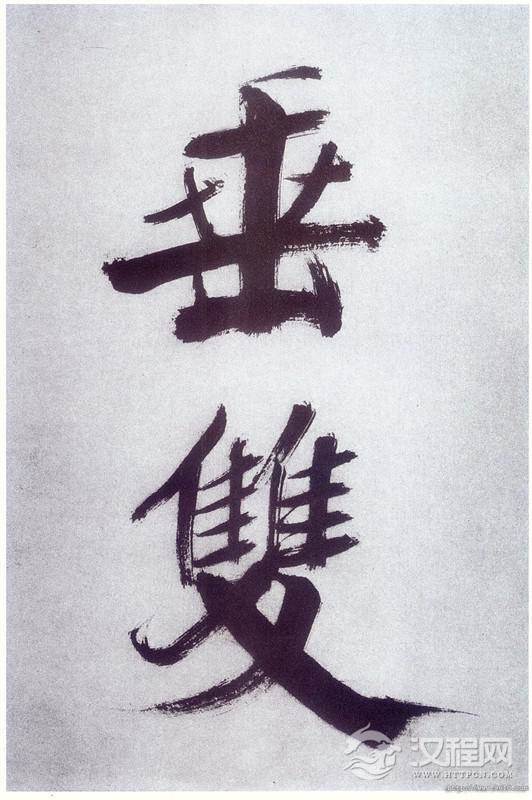 垂
雙
汉程网
WWW.HTTPCN.COM